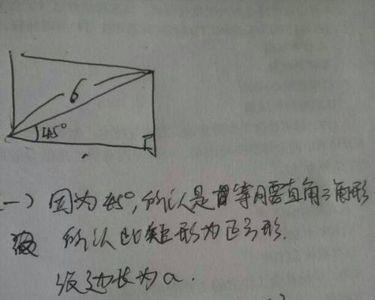 6
45°
一) 因为45°,所以是等腰直角三角形
所以此矩形为正方形.
设边长为a.